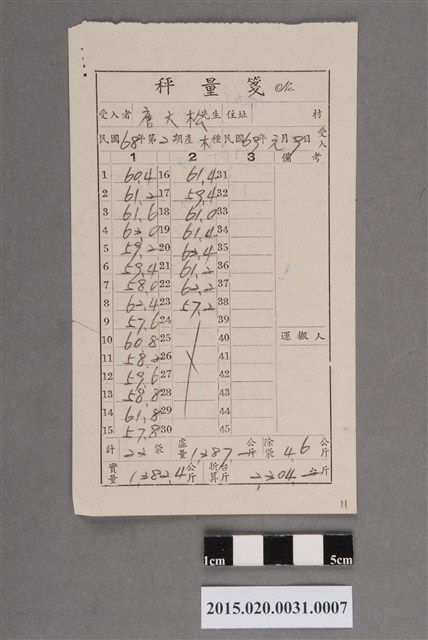 秤量箋 No.
受入者 唐大松先生 住址 村
民國68年第2期產 木種民國69年元月9日 受入
1 2 3 備考
1 60.4 16 61.4 31
2 61.2 17 59.4 32
3 61.6 18 61.0 33
4 62.0 19 61.4 34
5 59.2 20 62.4 35
6 59.4 21 61.2 36
7 58.0 22 62.2 37
8 62.4 23 57.2 38
9 57.6 24 39
10 60.8 25 40 運搬人
11 58.2 26 41
12 59.6 27 42
13 58.8 28 43
14 61.8 29 44
15 57.8 30 45
計 23 袋 總量 1387 公斤 除袋 4.6 公斤
實量 1382.4 公斤 折合算斤 2304 台斤
11
1cm 5cm
2015.020.0031.0007